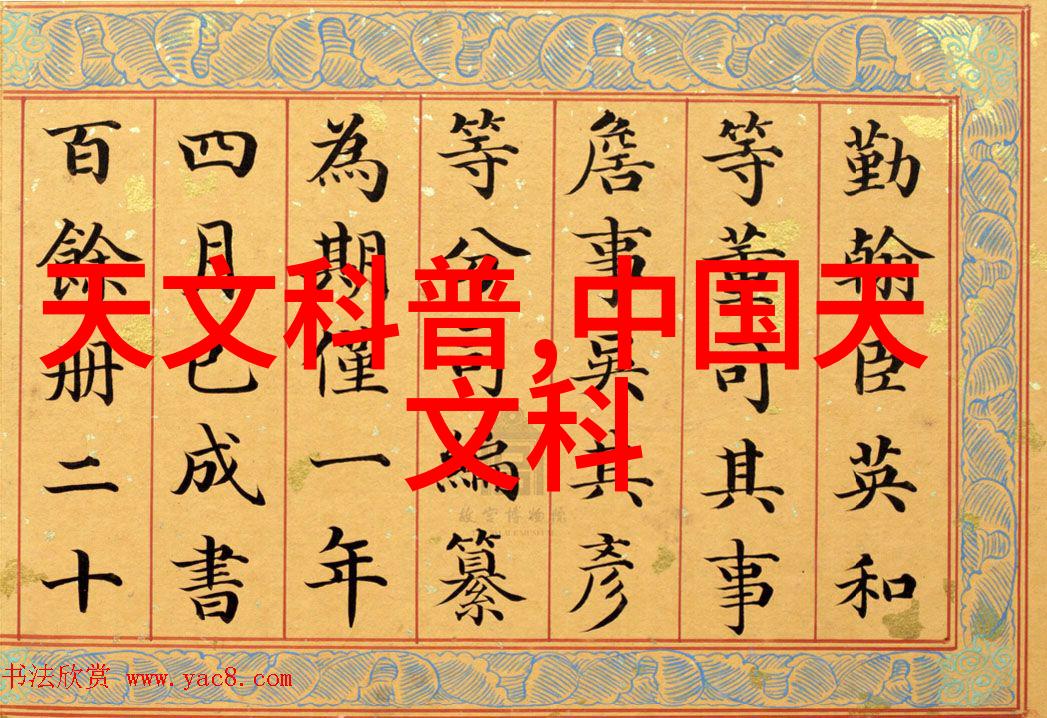 天文科普,中国天
文科
勤翰臣英和
等董司其事
詹事吳其彥
等分司編纂
為期僅一年
四月已成書
百餘册二十
故宫博物院
书法欣赏 www.yac8.com